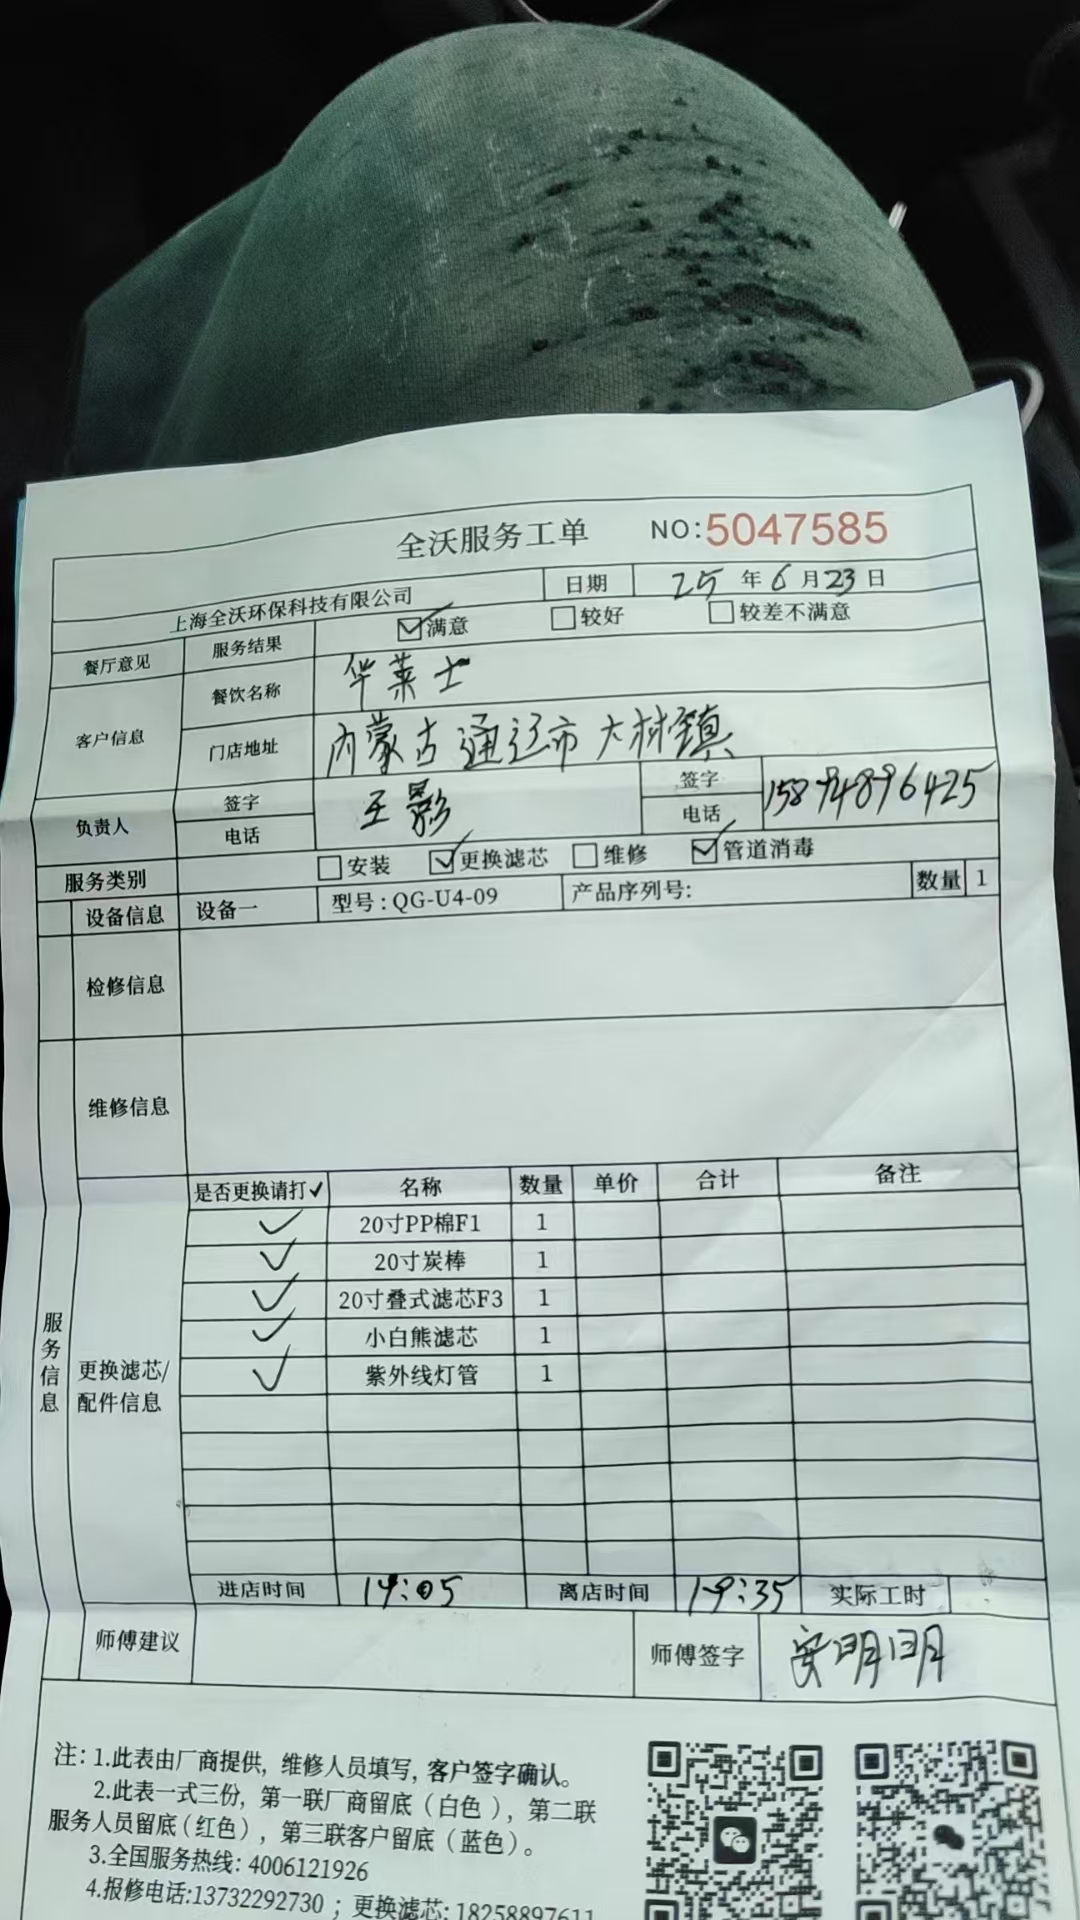 全沃服务工单 NO:5047585
上海全沃环保科技有限公司 日期 25年6月23日
餐厅意见 服务结果 ☑满意 □较好 □较差不满意
客户信息 餐饮名称 华莱士
门店地址 内蒙古通辽市大林镇
负责人 签字 王影 签字
电话 电话 15894896425
服务类别 □安装 ☑更换滤芯 □维修 ☑管道消毒
设备信息 设备一 型号:QG-U4-09 产品序列号: 数量 1
检修信息
维修信息
服务信息
更换滤芯/配件信息
是否更换请打✓ 名称 数量 单价 合计 备注
✓ 20寸PP棉F1 1
✓ 20寸炭棒 1
✓ 20寸叠式滤芯F3 1
✓ 小白熊滤芯 1
✓ 紫外线灯管 1
进店时间 14:05 离店时间 14:35 实际工时
师傅建议 师傅签字 明明
注: 1.此表由厂商提供, 维修人员填写, 客户签字确认。
2.此表一式三份, 第一联厂商留底(白色), 第二联
服务人员留底(红色), 第三联客户留底(蓝色)。
3.全国服务热线: 4006121926
4.报修电话:13732292730 ; 更换滤芯: 18258897611